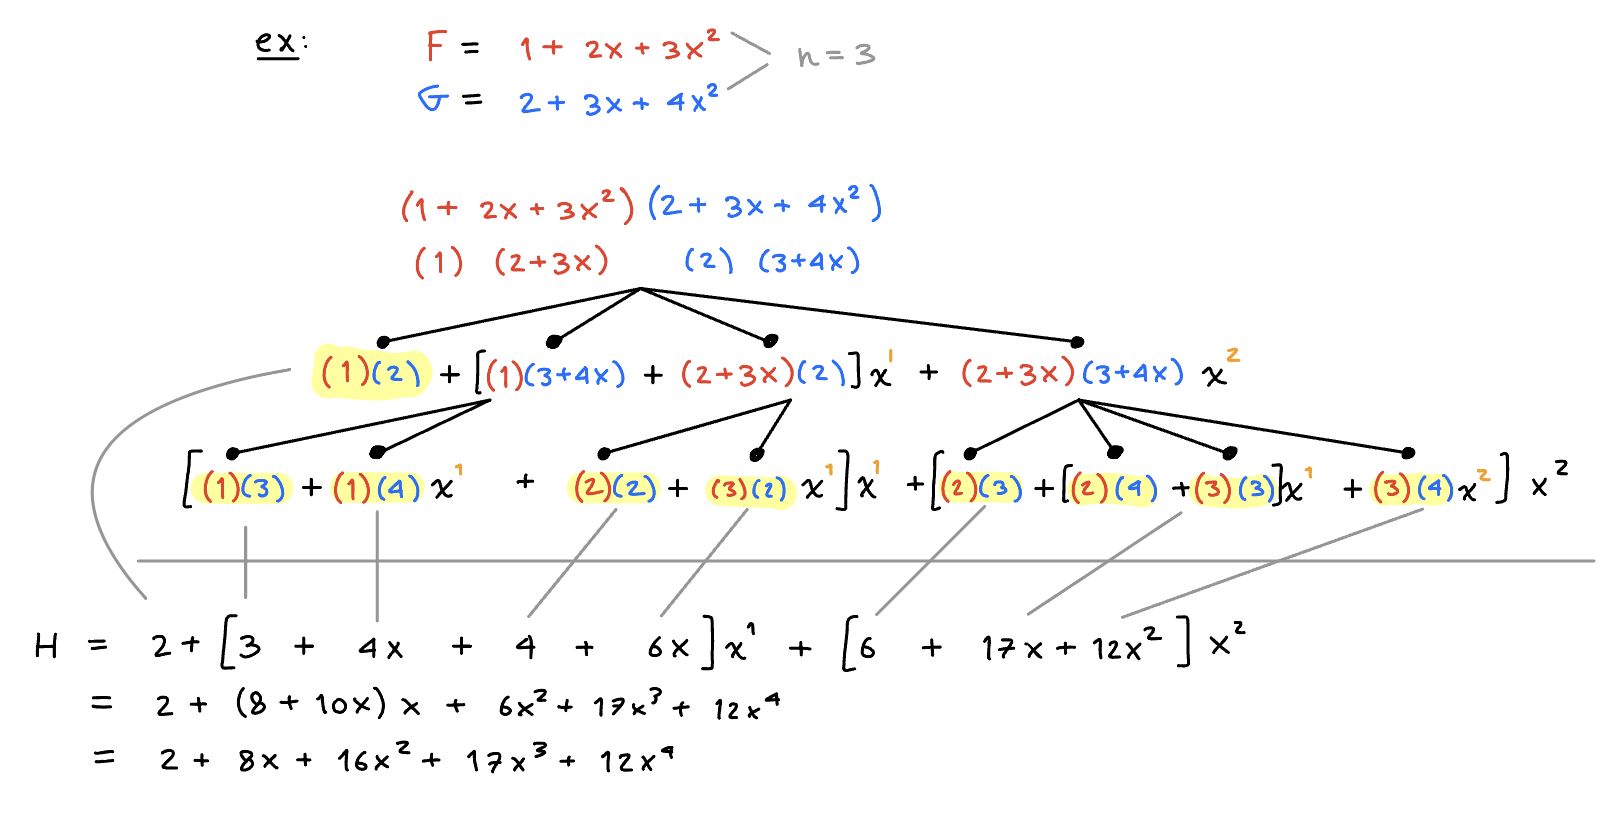 ex:
F = 1 + 2x + 3x²
n = 3
G = 2 + 3x + 4x²
(1 + 2x + 3x²) (2 + 3x + 4x²)
(1) (2+3x) (2) (3+4x)
(1)(2) + [(1)(3+4x) + (2+3x)(2)]x¹ + (2+3x)(3+4x) x²
[(1)(3) + (1)(4)x¹ + (2)(2) + (3)(2)x¹]x¹ + [(2)(3) + [(2)(4) + (3)(3)]x¹ + (3)(4)x²] x²
H = 2 + [3 + 4x + 4 + 6x]x¹ + [6 + 17x + 12x²] x²
= 2 + (8 + 10x) x + 6x² + 17x³ + 12x⁴
= 2 + 8x + 16x² + 17x³ + 12x⁴